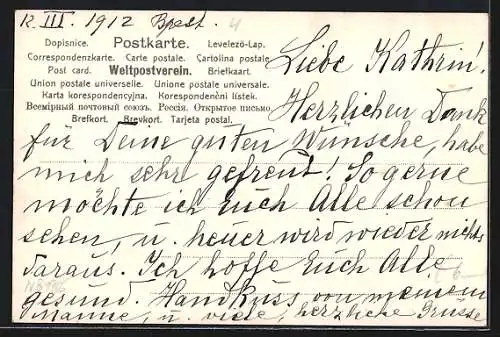 12. III. 1912 Brest.
Dopisnice. Postkarte. Levelezö-Lap.
Correspondenzkarte. Carte postale. Cartolina postale
Post card. Weltpostverein. Briefkaart.
Union postale universelle. Unione postale universale.
Karta korespondencyjna. Korespondenční lístek.
Всемірный почтовый союзъ. Россія. Открытое письмо
Brefkort. Brevkort. Tarjeta postal.
Liebe Kathrin!
Herzlichen Dank
für Deine guten Wünsche, habe
mich sehr gefreut! So gerne
möchte ich Euch Alle schon
sehen, u. heuer wird wieder nichts
daraus. Ich hoffe Euch Alle
gesund. Handkuss von meinem
Manne, u. viele, herzliche Grüsse